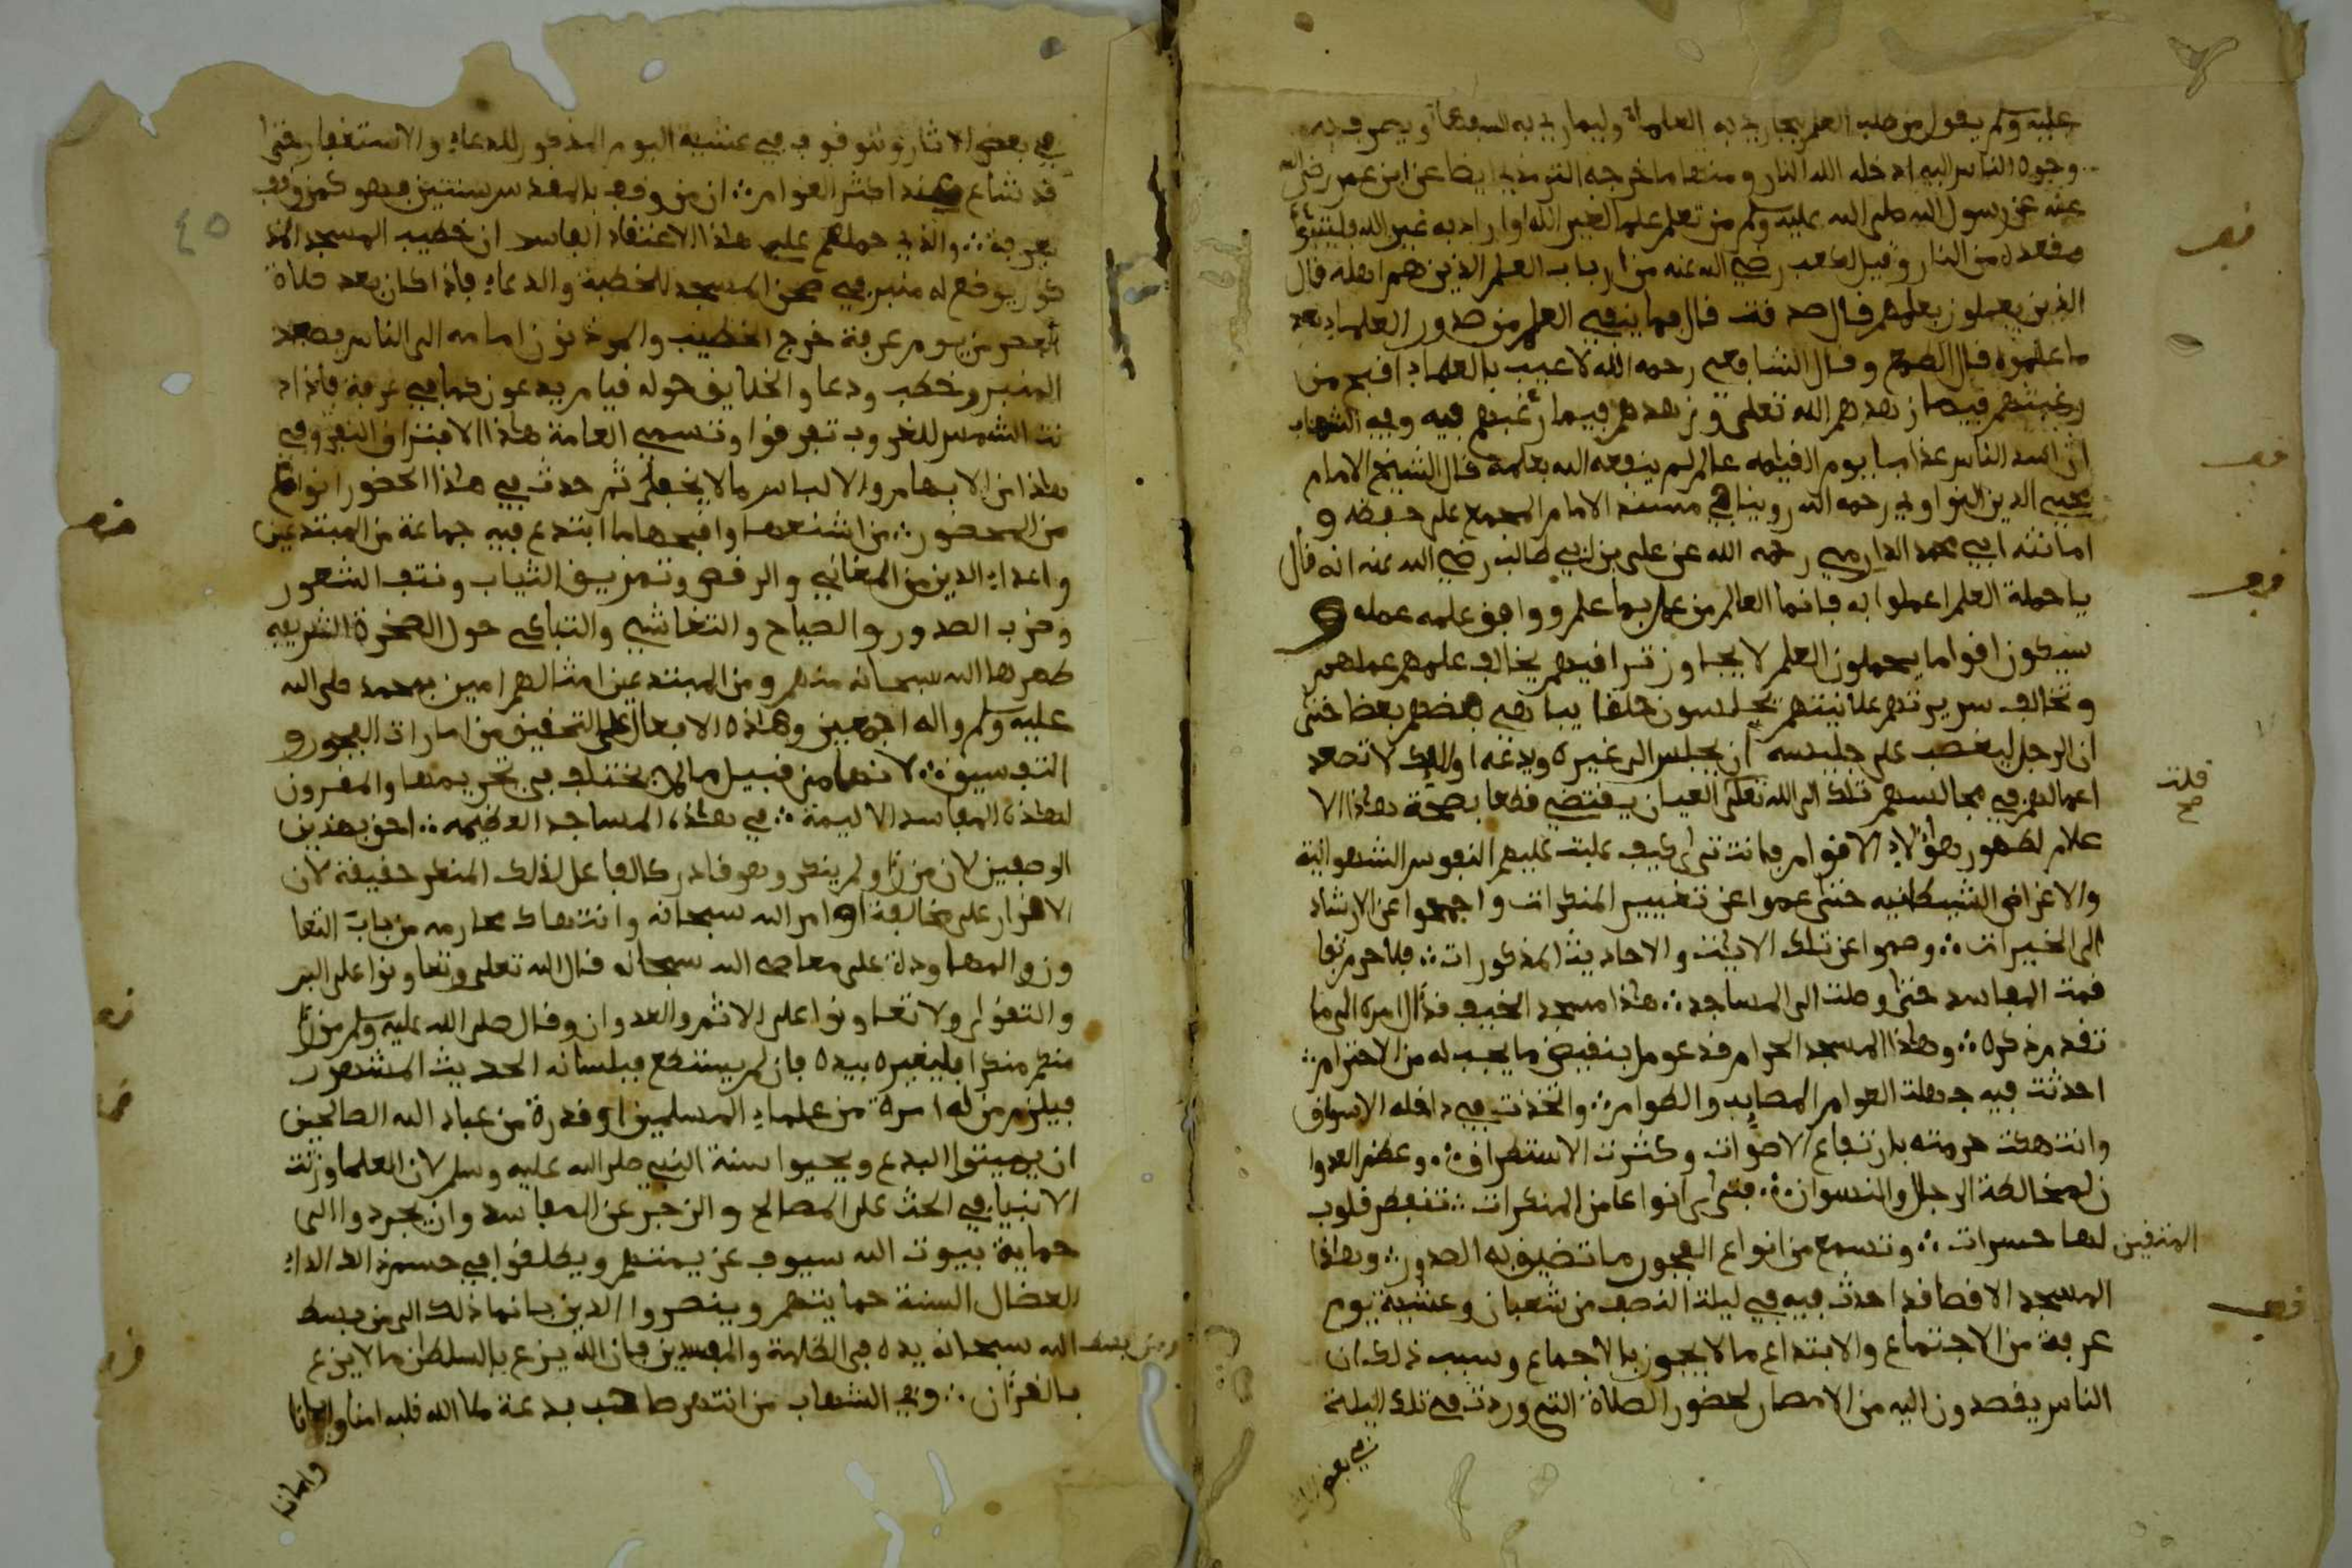 عليه وسلم يقول من طلب العلم ليجاري به العلماء وليماري به السفهاء ويصرف به
وجوه الناس اليه ادخله الله النار ومنها ما خرجه الترمذي ايضا عن ابن عمر رضي الله
عنه عن رسول الله صلى الله عليه وسلم من تعلم علما لغير الله او اراد به غير الله فليتبوأ
مقعده من النار وقيل لكعب رضي الله عنه من ارباب العلم الذين هم اهله قال
الذين يعملون بعلمهم قال صدقت قال فما ينفي العلم من صدور العلماء بعد
ما علموه قال الطمع وقال الشافعي رحمه الله لا عيب بالعلماء اقبح من
رغبتهم فيما زهدهم الله تعلى وزهدهم فيما رغبهم فيه وفي الشهاب
ان اشد الناس عذابا يوم القيمة عالم لم ينفعه الله بعلمه قال الشيخ الامام
محيي الدين النواوي رحمه الله روينا في مسند الامام المجمع على حفظه و
امانته ابي محمد الدارمي رحمه الله عن علي بن ابي طالب رضي الله عنه انه قال
يا حملة العلم اعملوا به فانما العالم من عمل بما علم ووافق علمه عمله و
سيكون اقواما يحملون العلم لا يجاوز تراقيهم يخالف علمهم عملهم
وتخالف سريرتهم علانيتهم يجلسون حلقا يباهي بعضهم بعضا حتى
ان الرجل ليغضب على جليسه ان يجلس الى غيره ويدعه اوليك لا تصعد
اعمالهم في مجالسهم تلك الى الله تعلى العيان يقتضي قطعا بصحة هذا الا
علام لظهور هؤلاء الاقوام فانت ترى كيف غلبت عليهم النفوس الشهوانية
والاغراض الشيطانيه حتى عموا عن تغيير المنكرات واجمحوا عن الارشاد
الى الخيرات وصموا عن تلك الايات والاحاديث المذكورات فلا جرم تفا
قمت المفاسد حتى وصلت الى المساجد هذا مسجد الخيف قد ال امره الى ما
تقدم ذكره وهذا المسجد الحرام قد عومل بنقيض ما يجب له من الاحترام
احدثت فيه جهلت العوام المصايد والطوام واتخذت في داخله الاسواق
وانتهكت حرمته بارتفاع الاصوات وكثرت الاستطراق وعظم العدوا
ن لمخالطة الرجال والنسوان فترى انواعا من المنكرات تنفطر قلوب
المتقين لها حسرات وتسمع من انواع الفجور ما تضيق به الصدور وهذا
المسجد الاقصا قد احدث فيه في ليلة النصف من شعبان وعشية يوم
عرفة من الاجتماع والابتداع ما لا يجوز بالاجماع وسبب ذلك ان
الناس يقصدون اليه من الامصار لحضور الصلاة التي وردت في تلك الليلة
في بعض
قف
قف
قف
قلت
صح
قف
في بعض الاثار وللوقوف في عشية اليوم المذكور للدعاء والاستغفار حتى
قد شاع عند اكثر العوام ان من وقف بالمقدس سنتين فهو كمن وقف
بعرفة والذي حملهم على هذا الاعتقاد الفاسد ان خطيب المسجد المذ
كور يوضع له منبر في صحن المسجد للخطبة والدعاء فاذا كان بعد صلاة
العصر من يوم عرفة خرج الخطيب والموذنون امامه الى الناس فصعد
المنبر وخطب ودعا والخلايق حوله قياما يدعون كما في عرفة فاذا د
نت الشمس للغروب تفرقوا وتسمي العامة هذا الافتراق النفر وفي
هذا من الابهام والالباس ما لا يخفى ثم حدث في هذا الحضور انواع
من المحضور من اشنعها واقبحها ما ابتدع فيه جماعة من المبتدعين
واعداء الدين من المغاني والرقص وتمزيق الثياب ونتف الشعور
وضرب الصدور والصياح والتغاشي والتباكي حول الصخرة الشريفه
طهرها الله سبحانه منهم ومن المبتدعين امثالهم امين بمحمد صلى الله
عليه وسلم واله اجمعين وهذه الافعال على التحقيق من امارات الفجور و
التفسيق لانها من قبيل ما لم يختلف في تحريمها والمقرون
لهذه المفاسد الاليمة في هذه المساجد العظيمه احق بهذين
الوصفين لان من رأى ولم ينكر وهو قادر كالفاعل لذلك المنكر حقيقة لان
الاقرار على مخالفة اوامر الله سبحانه وانتهاك محارمه من باب التعا
ون والمهاودة على معاصي الله سبحانه قال الله تعلى وتعاونوا على البر
والتقوى ولا تعاونوا على الاثم والعدوان وقال صلى الله عليه وسلم من رأى
منكم منكرا فليغيره بيده فان لم يستطع فبلسانه الحديث المشهور
فيلزم من له امرة من علماء المسلمين او قدرة من عباد الله الصالحين
ان يميتوا البدع ويحيوا سنة النبي صلى الله عليه وسلم لان العلما ورثت
الانبياء في الحث على المصالح والزجر عن المفاسد وان يجردوا الى
حماية بيوت الله سيوف عزيمتهم ويطلقوا في حسم الداء
العضال السنة حمايتهم وينصروا الدين فانما ذلك الى من بسط
ومن بسط الله سبحانه يده في الظلمة والمفسدين فان الله يزع بالسلطن ما لا يزع
بالقرءان وفي الشهاب من انتهر صاحب بدعة ملا الله قلبه امنا وايمانا
وايمانا
٤٥